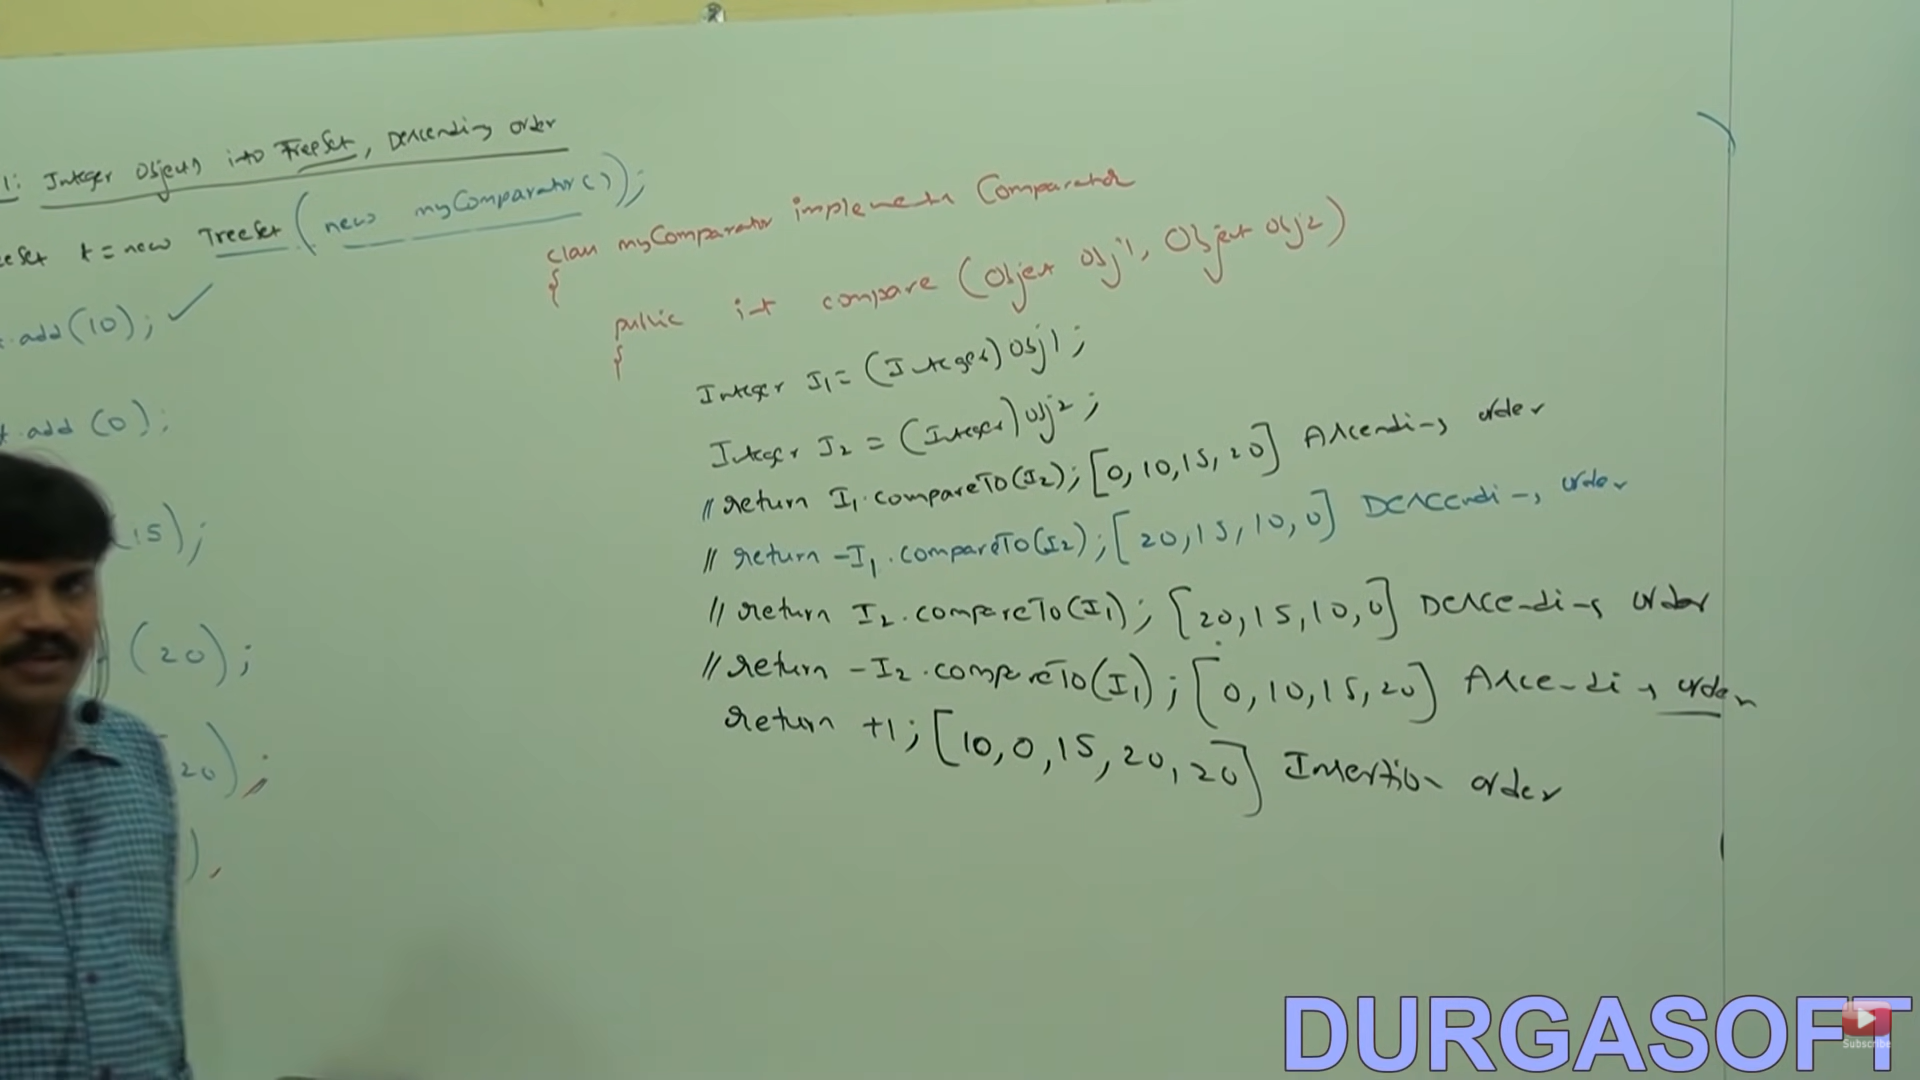 1: Integer Objects into TreeSet, Descending order
t = new TreeSet(new myComparator());
.add(10);
t.add(0);
(15);
(20);
20);
);
class myComparator implements Comparator
{
public int compare (Object obj1, Object obj2)
{
Integer I1 = (Integer) obj1;
Integer I2 = (Integer) obj2;
// return I1.compareTo(I2); [0, 10, 15, 20] Ascending order
// return -I1.compareTo(I2); [20, 15, 10, 0] Descending order
// return I2.compareTo(I1); [20, 15, 10, 0] Descending order
// return -I2.compareTo(I1); [0, 10, 15, 20] Ascending order
return +1; [10, 0, 15, 20, 20] Insertion order
DURGASOFT
Subscribe